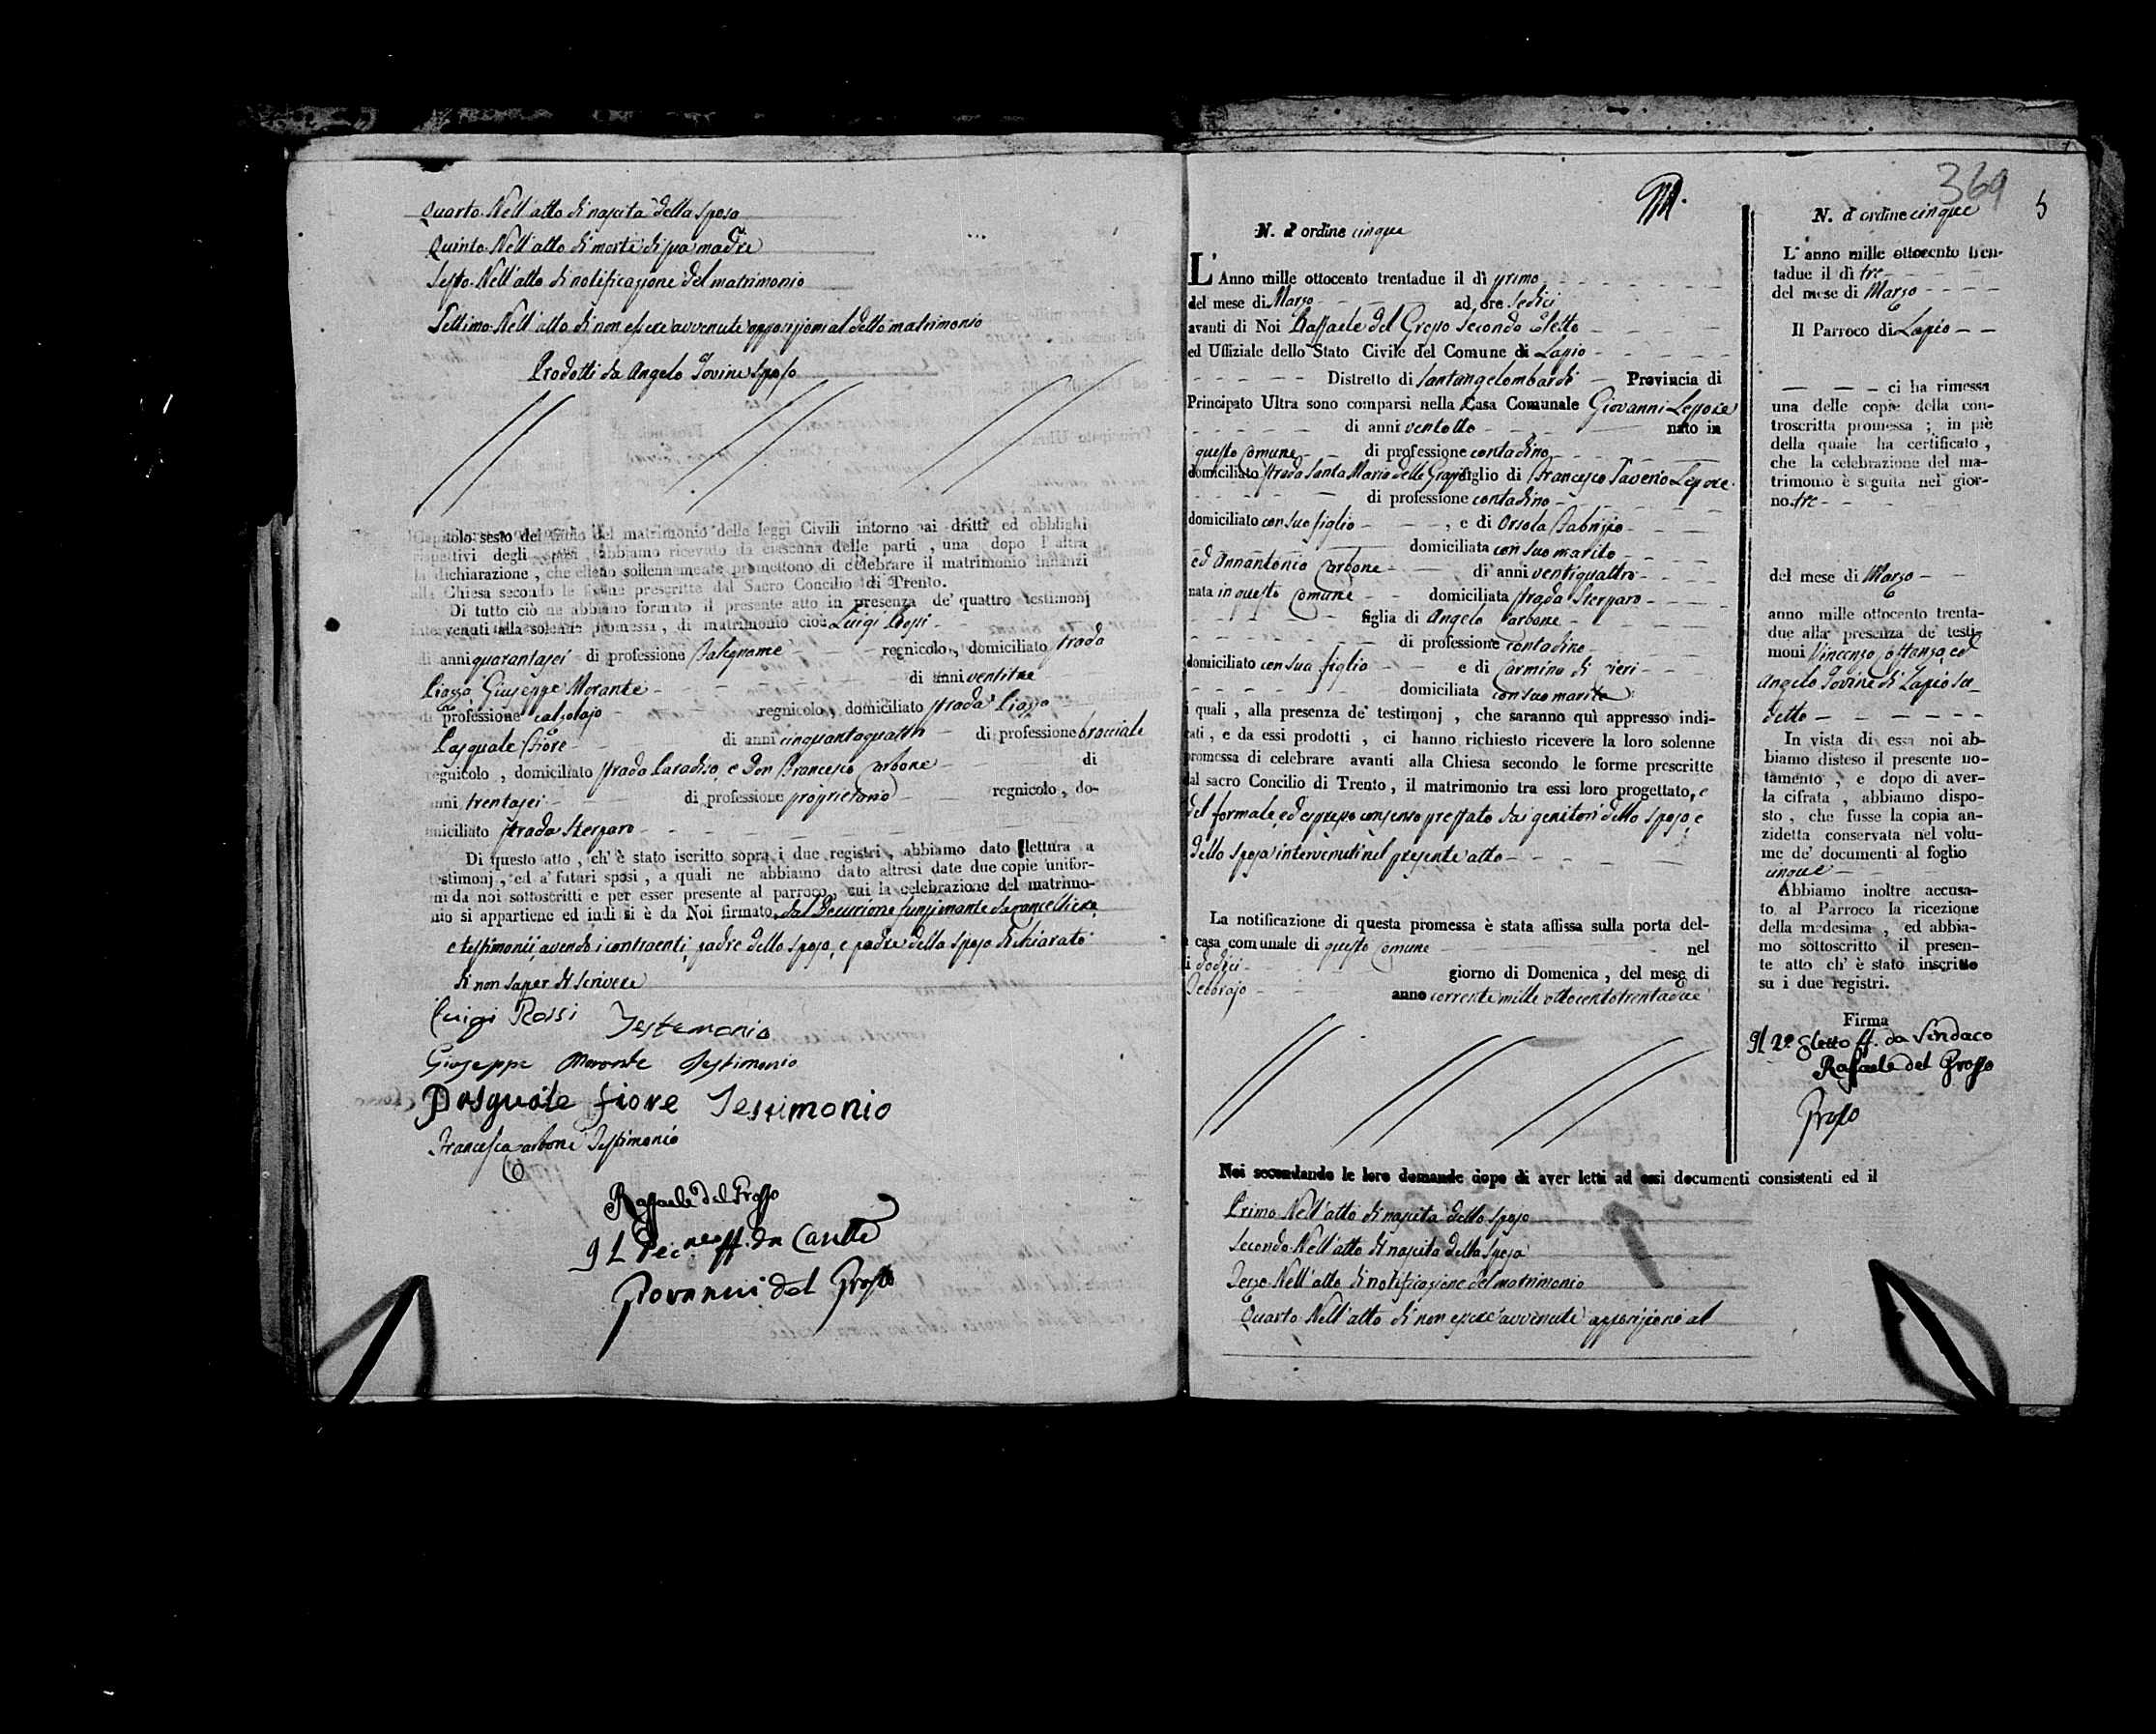 Quarto. Nell'atto di nascita della sposa
Quinto. Nell'atto di morte di sua madre
Sesto. Nell'atto di notificazione del matrimonio
Settimo. Nell'atto di non essere avvenute opposizioni al detto matrimonio
Prodotti da Angelo Iovine sposo
Capitolo sesto del titolo del matrimonio delle leggi Civili intorno ai dritti ed obblighi
rispettivi degli sposi abbiamo ricevuto da ciascuna delle parti, una dopo l'altra
la dichiarazione, che elleno sollennemente promettono di celebrare il matrimonio innanzi
alla Chiesa secondo le forme prescritte dal Sacro Concilio di Trento.
Di tutto ciò ne abbiamo formato il presente atto in presenza de' quattro testimonj
intervenuti alla solenne promessa, di matrimonio cioè Luigi Rossi
di anni quarantasei di professione Falegname regnicolo, domiciliato strada
Piazza Giuseppe Morante di anni ventitre
di professione calzolajo regnicolo, domiciliato strada Piazza
Pasquale Fiore di anni cinquantaquattro di professione bracciale
regnicolo, domiciliato strada Paradiso, e Don Francesco Carbone di
anni trentasei di professione proprietario regnicolo, do-
miciliato strada Sterparo
Di questo atto, ch'è stato iscritto sopra i due registri, abbiamo dato lettura a
testimonj, ed a' futuri sposi, a quali ne abbiamo dato altresì date due copie unifor-
mi da noi sottoscritti e per esser presente al parroco, cui la celebrazione del matrimo-
nio si appartiene ed indi si è da Noi firmato, dal Decurione funzionante da cancelliere,
e testimonii, avendo i contraenti, padre dello sposo, e padre della sposa dichiarato
di non saper di scrivere
Luigi Rossi Testemonio
Giuseppe Morante Testimonio
Pasquale fiore Testimonio
Francesco Carbone Testimonio
Raffaele del Grosso
Il Dec.neo ff. da Canc.re
Giovanni del Grosso
M.
369
5
N. d'ordine cinque
L'Anno mille ottocento trentadue il dì primo
del mese di Marzo ad ore sedici
avanti di Noi Raffaele del Grosso Secondo Eletto
ed Uffiziale dello Stato Civile del Comune di Lapio
Distretto di Santangelombardi Provincia di
Principato Ultra sono comparsi nella Casa Comunale Giovanni Lepore
di anni ventotto nato in
questo Comune di professione contadino
domiciliato strada Santa Maria delle Grazie figlio di Francesco Saverio Lepore
di professione contadino
domiciliato con suo figlio, e di Orsola Fabrizio
domiciliata con suo marito
ed Annantonia Carbone di anni ventiquattro
nata in questo Comune domiciliata strada Sterparo
figlia di Angelo Carbone
di professione Contadino
domiciliato con sua figlia e di Carmina di Ieri
domiciliata con suo marito
i quali, alla presenza de' testimonj, che saranno quì appresso indi-
cati, e da essi prodotti, ci hanno richiesto ricevere la loro solenne
promessa di celebrare avanti alla Chiesa secondo le forme prescritte
dal sacro Concilio di Trento, il matrimonio tra essi loro progettato, e
del formale, ed espresso consenso prestato dai genitori dello sposo, e
della sposa intervenuti nel presente atto
La notificazione di questa promessa è stata affissa sulla porta del-
la casa comunale di questo Comune nel
dì dodici giorno di Domenica, del mese di
Febbrajo anno corrente mille ottocentotrentadue
Noi secondando le loro domande dopo di aver letti ad essi documenti consistenti ed il
Primo. Nell'atto di nascita dello sposo
Secondo. Nell'atto di nascita della sposa
Terzo. Nell'atto di notificazione del matrimonio
Quarto. Nell'atto di non essere avvenute opposizioni al
N. d'ordine cinque
L'anno mille ottocento tren-
tadue il dì tre
del mese di Marzo
Il Parroco di Lapio
ci ha rimessa
una delle copie della con-
troscritta promessa; in piè
della quale ha certificato,
che la celebrazione del ma-
trimonio è seguita nel gior-
no tre
del mese di Marzo
anno mille ottocento trenta-
due alla presenza de' testi-
moni Vincenzo Costanza, ed
Angelo Iovine di Lapio su-
detto
In vista di essa noi ab-
biamo disteso il presente no-
tamento, e dopo di aver-
la cifrata, abbiamo dispo-
sto, che fusse la copia an-
zidetta conservata nel volu-
me de' documenti al foglio
cinque
Abbiamo inoltre accusa-
to al Parroco la ricezione
della medesima, ed abbia-
mo sottoscritto il presen-
te atto ch'è stato inscritto
su i due registri.
Firma
Il 2º Eletto ff. da Sindaco
Raffaele del Grosso
Grosso